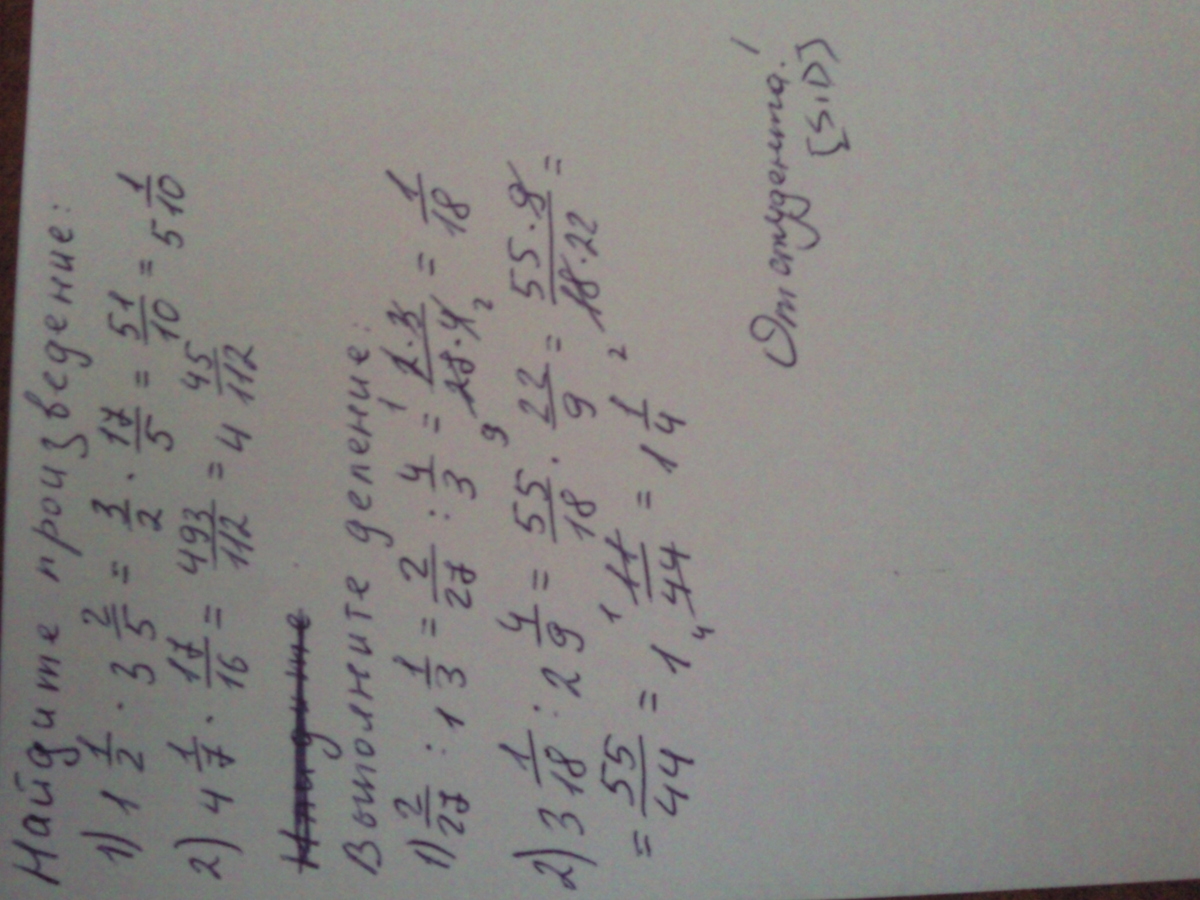 Найдите произведение:
1) 1 1/2 · 3 2/5 = 3/2 · 17/5 = 51/10 = 5 1/10
2) 4 1/7 · 17/16 = 493/112 = 4 45/112
Найдите
Выполните деление:
1) 2/27 : 1 1/3 = 2/27 : 4/3 = 1 2·3/27·4 9 2 = 1/18
2) 3 1/18 : 2 4/9 = 55/18 · 22/9 = 55·9/18·22 2 =
= 55/44 = 1 1 11/44 4 = 1 1/4
От студента!
[S.D]